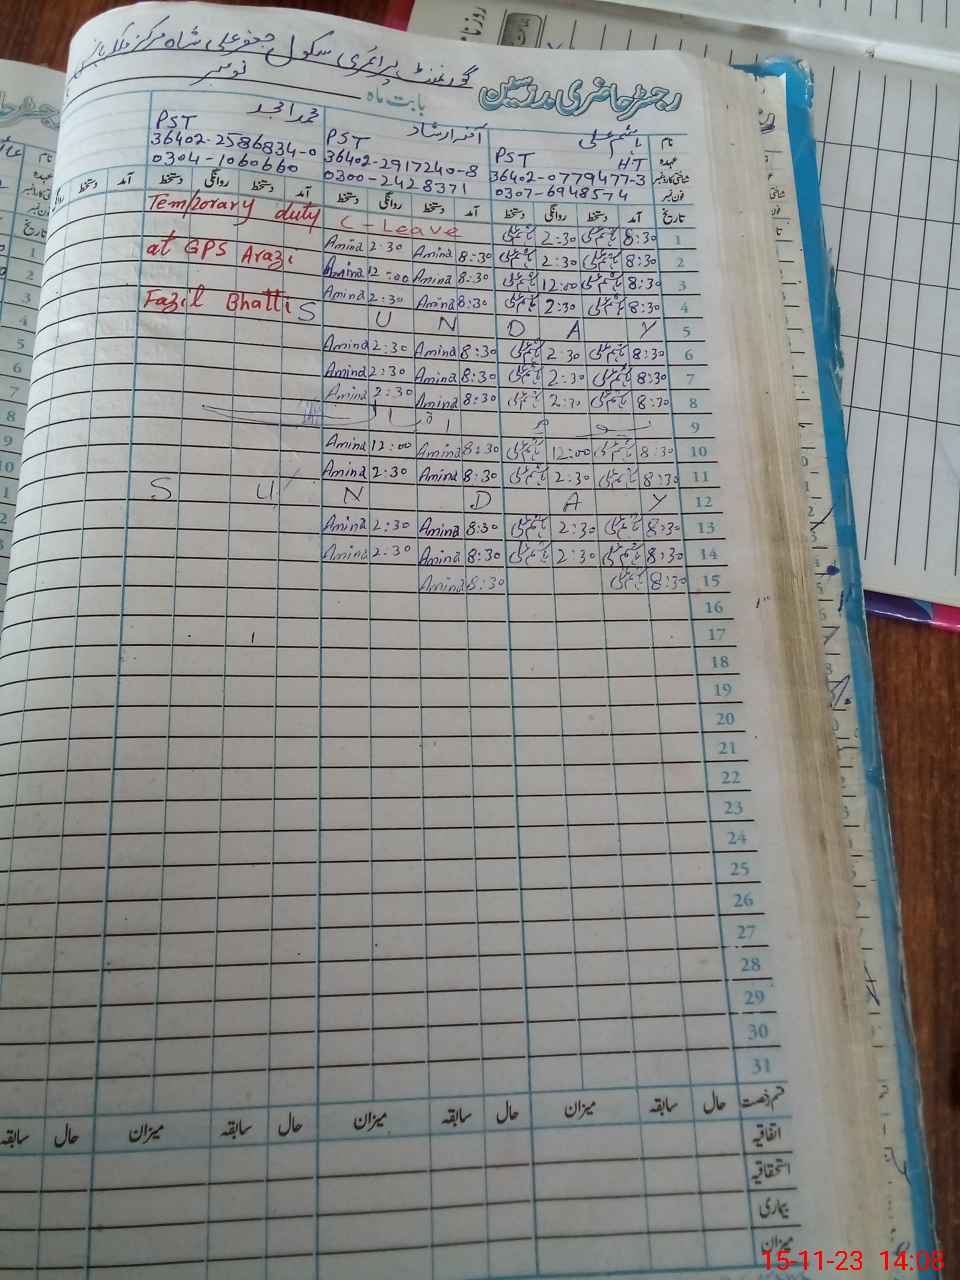 گورنمنٹ پرائمری سکول جعفر علی شاہ مرکز
رجسٹر حاضری مدرسین
بابت ماہ نومبر
نام ہاشم علی آمنہ ارشاد محمد امجد
عہدہ HT PST PST PST
36402-0779477-3 36402-2917240-8 36402-2586834-0
فون نمبر 0307-6948574 0300-2428371 0304-1060660
تاریخ آمد دستخط روانگی دستخط آمد دستخط روانگی دستخط آمد دستخط روانگی دستخط
1 8:30 ہاشم علی 2:30 ہاشم علی C-Leave Temporary duty
2 8:30 ہاشم علی 2:30 ہاشم علی 8:30 Amina 2:30 Amina at GPS Arazi
3 8:30 ہاشم علی 12:00 ہاشم علی 8:30 Amina 12:00 Amina
4 8:30 ہاشم علی 2:30 ہاشم علی 8:30 Amina 2:30 Amina Fazil Bhatti
5 S U N D A Y
6 8:30 ہاشم علی 2:30 ہاشم علی 8:30 Amina 2:30 Amina
7 8:30 ہاشم علی 2:30 ہاشم علی 8:30 Amina 2:30 Amina
8 8:30 ہاشم علی 2:30 ہاشم علی 8:30 Amina 2:30 Amina
9
10 8:30 ہاشم علی 12:00 ہاشم علی 8:30 Amina 12:00 Amina
11 8:30 ہاشم علی 2:30 ہاشم علی 8:30 Amina 2:30 Amina
12 S U N D A Y
13 8:30 ہاشم علی 2:30 ہاشم علی 8:30 Amina 2:30 Amina
14 8:30 ہاشم علی 2:30 ہاشم علی 8:30 Amina 2:30 Amina
15 8:30 ہاشم علی 8:30 Amina
16
17
18
19
20
21
22
23
24
25
26
27
28
29
30
31
قسم رخصت حال سابقہ میزان حال سابقہ میزان حال سابقہ میزان حال سابقہ
اتفاقیہ
استحقاقیہ
بیماری
میزان
15-11-23 14:08